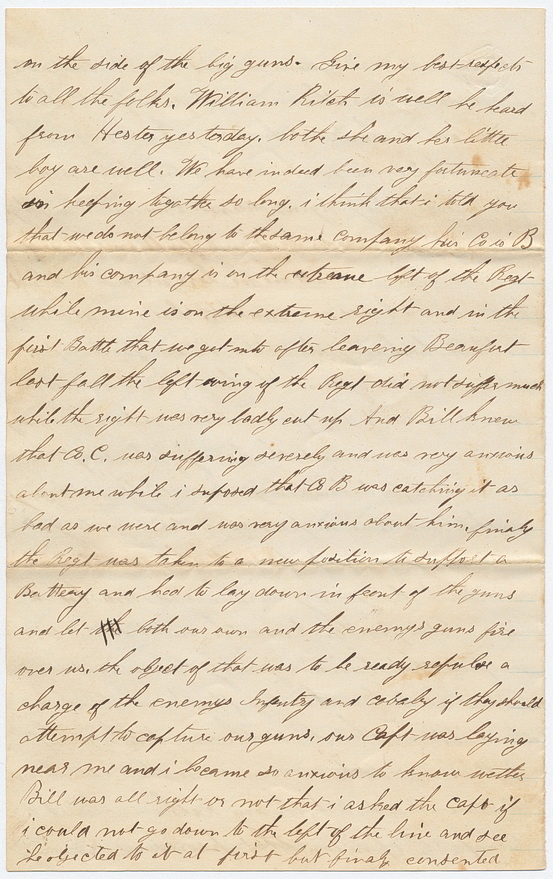 on the side of the big guns. Give my best respects
to all the folks. William Ritch is well he heard
from Hester yesterday. bothe she and her little
boy are well. We have indeed been very futunate
in keefing togathe so long. i think that i told you
that we do not belong to the same company his Co is B
and his company is on the extreame left of the Regt
while mine is on the extreme right and in the
first Battle that we got into after leaveing Beaufort
last fall the left wing of the Regt did not suffer much
while the right was very badly cut up And Bill knew
that Co. C. was suffering severely and was very anxious
about me while i suposed that Co B was catching it as
bad as we were and was very anxious about him. finaly
the Regt was taken to a new position to support a
Battery and had to lay down in front of the guns
and let both our own and the enemys guns fire
over us. the object of that was to be ready repulse a
charge of the enemys Infantry and cavalry if they should
attempt to capture our guns. our Capt was laying
near me and i became so anxious to know wether
Bill was all right or not that i asked the Capt if
i could not go down to the left of the line and see
he objected to it at first but finaly consented